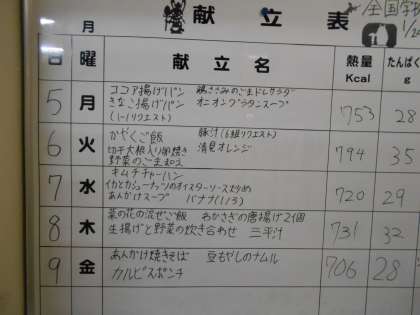 献立表
全国学校
1/2
月
日 曜 献立名 熱量 Kcal たんぱく g
5 月 ココア揚げパン 鶏ささみのごまドレサラダ 753 28
きなこ揚げパン オニオングラタンスープ
(1-1リクエスト)
6 火 かやくご飯 豚汁(6組リクエスト) 794 35
切干大根入り卵焼き 清見オレンジ
野菜のごま
7 水 キムチチャーハン 720 29
イカとカシューナッツのオイスターソース炒め
あんかけスープ バナナ(1/3)
8 木 菜の花の混ぜご飯 わかさぎの唐揚げ2個 731 32
生揚げと野菜の炊き合わせ 三平汁
9 金 あんかけ焼きそば 豆もやしのナムル 706 28
カルピスポンチ